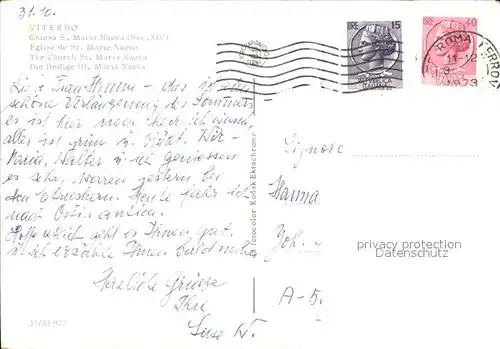 31.10.
VITERBO
Chiesa S. Maria Nuova (Sec. XIV)
Eglise de St. Marie Nuovo
The Church St. Maria Nuova
Die Heilige III. Maria Nuova
Liebe Frau Hanni - das ist eine
schöne Verlängerung des Sommers
es ist hier noch herrlich warm,
alles ist grün u. blüht. Wir -
Maria, Walter u. ich geniessen
es sehr, waren gestern bei
den Etruskern. Heute fahr ich
nach Ostia antica.
Hoffentlich geht es Ihnen gut
u. ich erzähle Ihnen bald mehr
Herzliche Grüsse
Ihre
Luse W.
Fotocolor Kodak Ektachrome
LIRE 15
LIRE 40
ROMA FERROV
11-12
1973
Signora
Hanna
A-5
privacy protection
Datenschutz